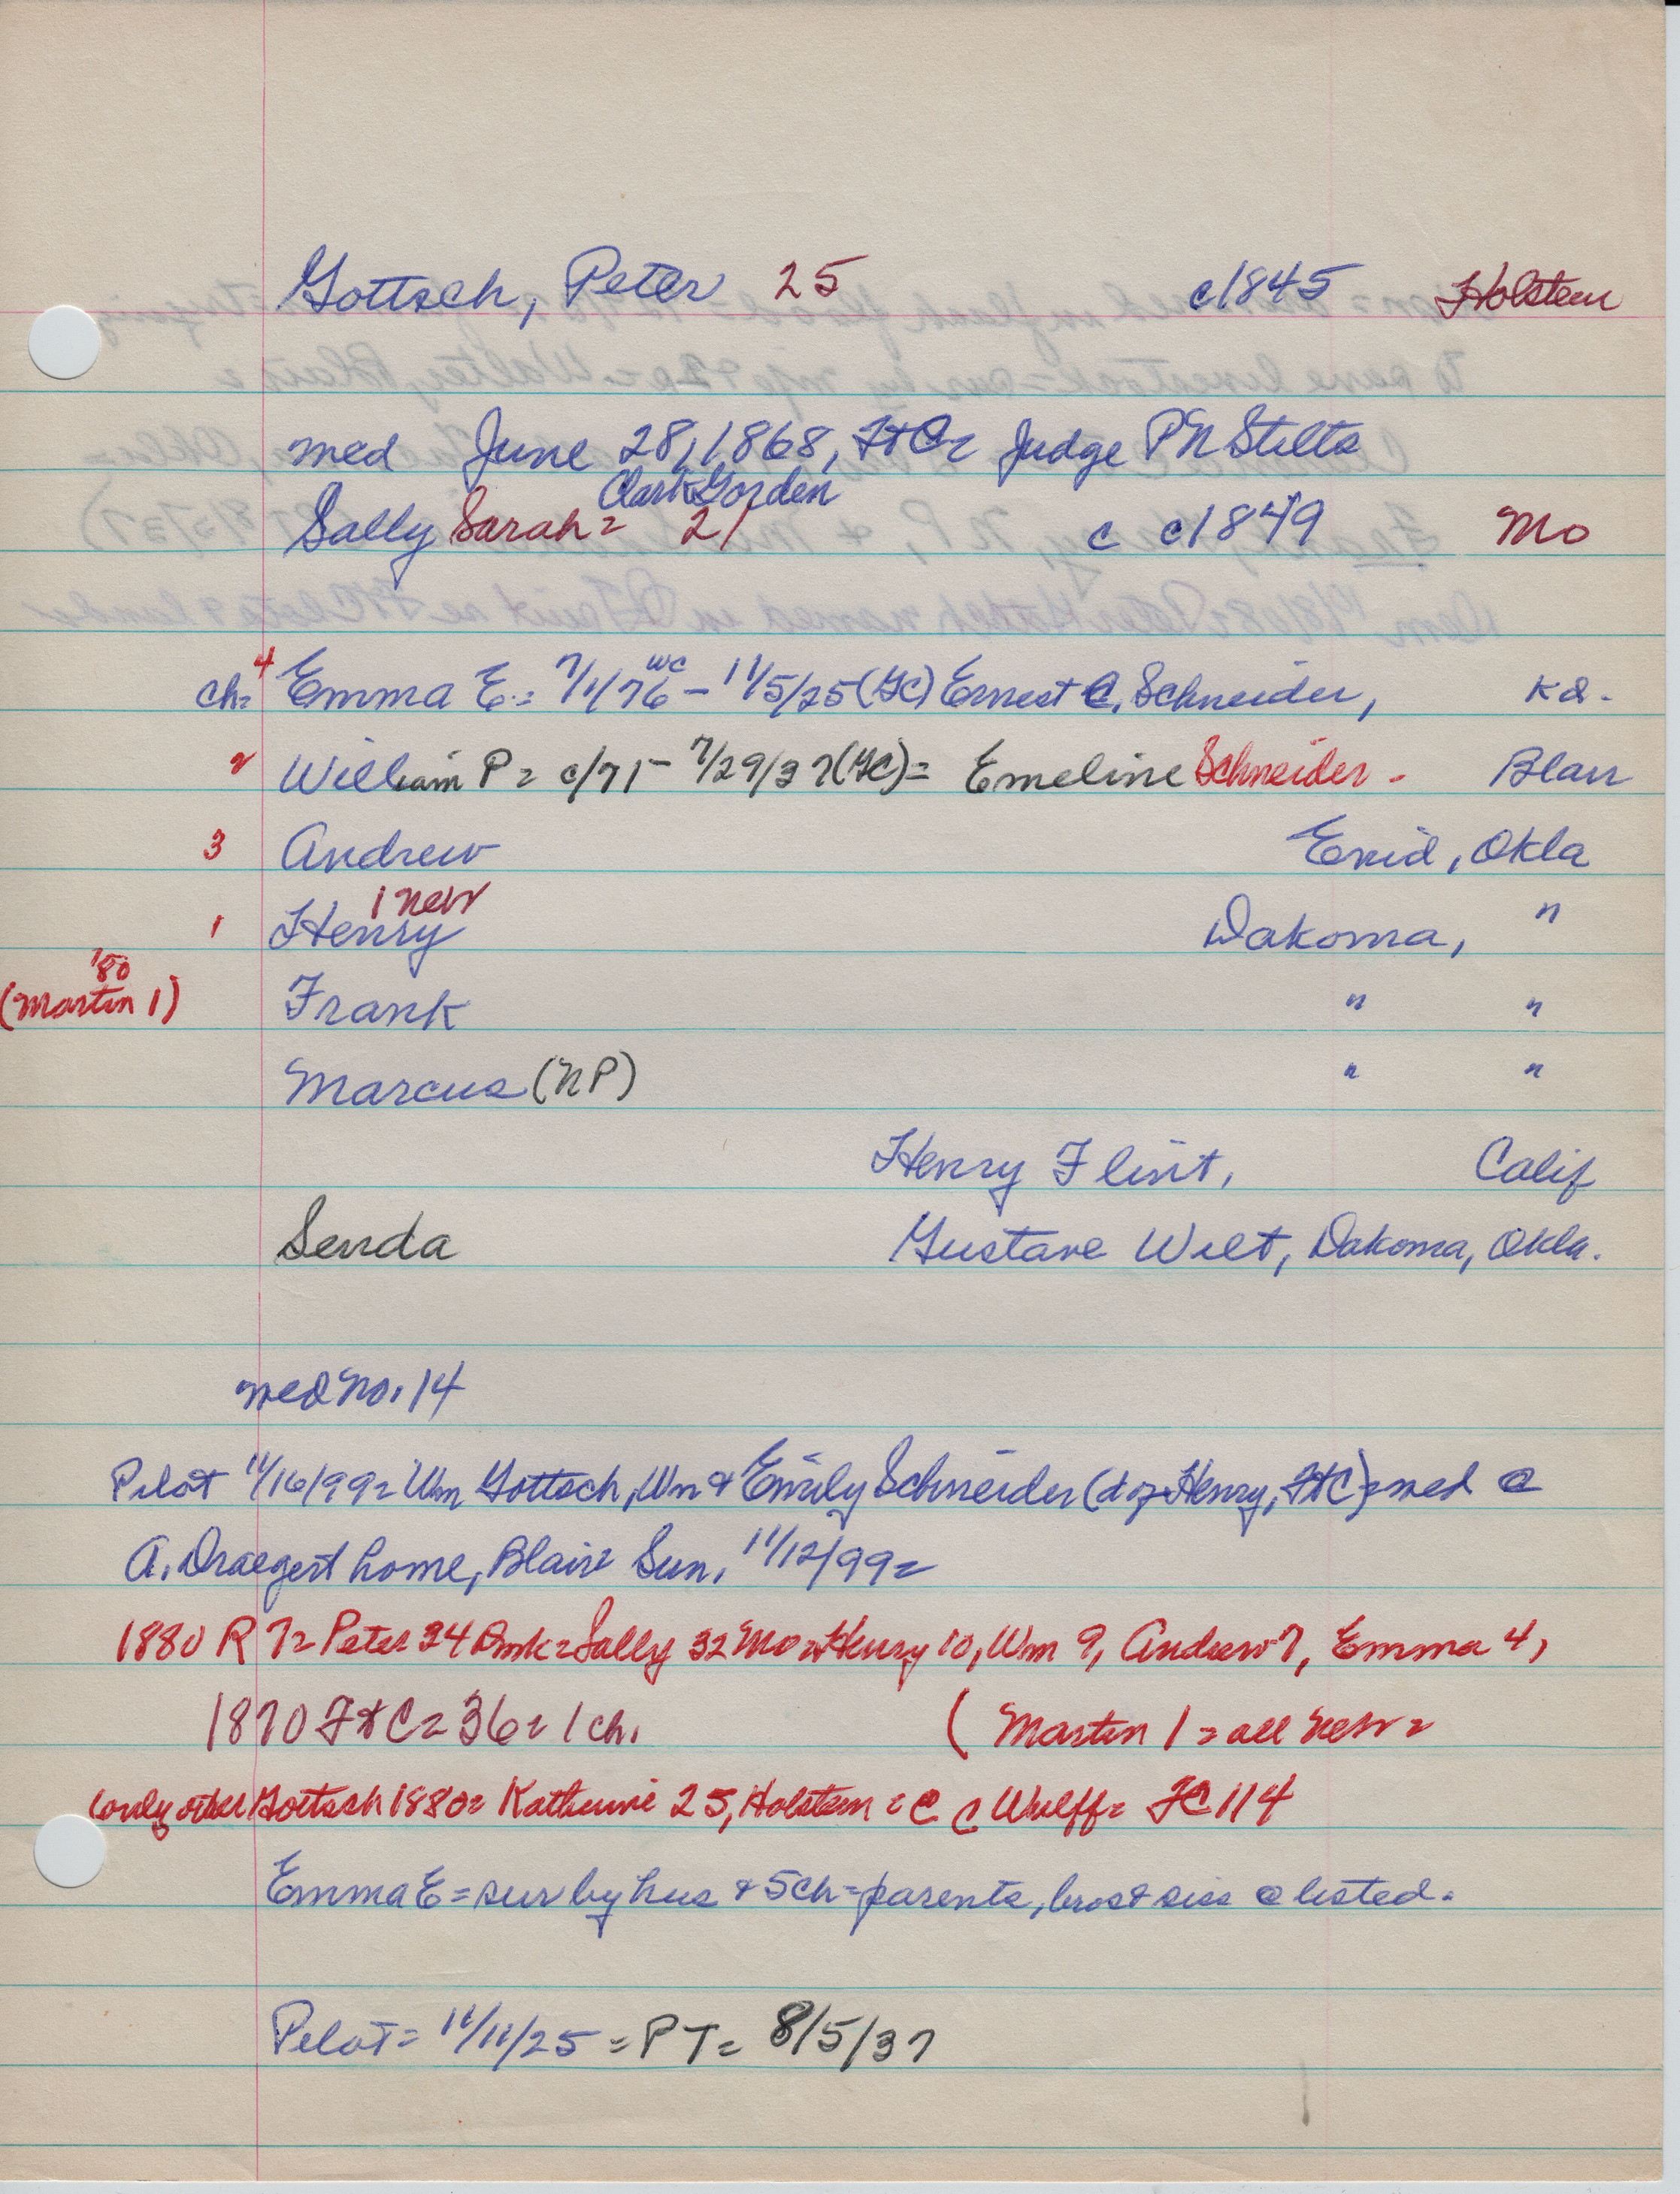 Gottsch, Peter 25 c1845 Holstein
med June 28, 1868, FtC= Judge PN Stilts
Clark Gorden
Sally Sarah= 21 c c1849 Mo
ch= 4 Emma E= 7/1/76 wc - 11/5/25 (GC) Ernest C. Schneider, Ks.
2 William P= c/71 - 7/29/37 (GC)= Emeline Schneider - Blair
3 Andrew Enid, Okla
1 Nebr
1 Henry Dakoma, "
'80
(Martin 1) Frank " "
Marcus (NP) " "
Henry Flint, Calif
Senda Gustave Wilt, Dakoma, Okla.
med No. 14
Pilot 11/16/99= Wm Gottsch, Wn & Emily Schneider (d of Henry, FtC) = med @
A. Draegert home, Blair= Sun. 11/12/99=
1880 R 7= Peter 34 Dmk= Sally 32 Mo= Henry 10, Wm 9, Andrew 7, Emma 4,
1870 FtC= 36= 1 ch. ( Martin 1= all Nebr=
(only other Gottsch 1880= Katherine 25, Holstein= @ C Wulff= FC 114
Emma E= sur by hus & 5 ch= parents, bros & siss @ listed.
Pilot= 11/11/25 = PT= 8/5/37